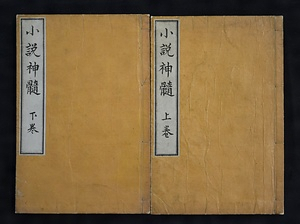 小説神髓 上巻
小説神髓 下巻